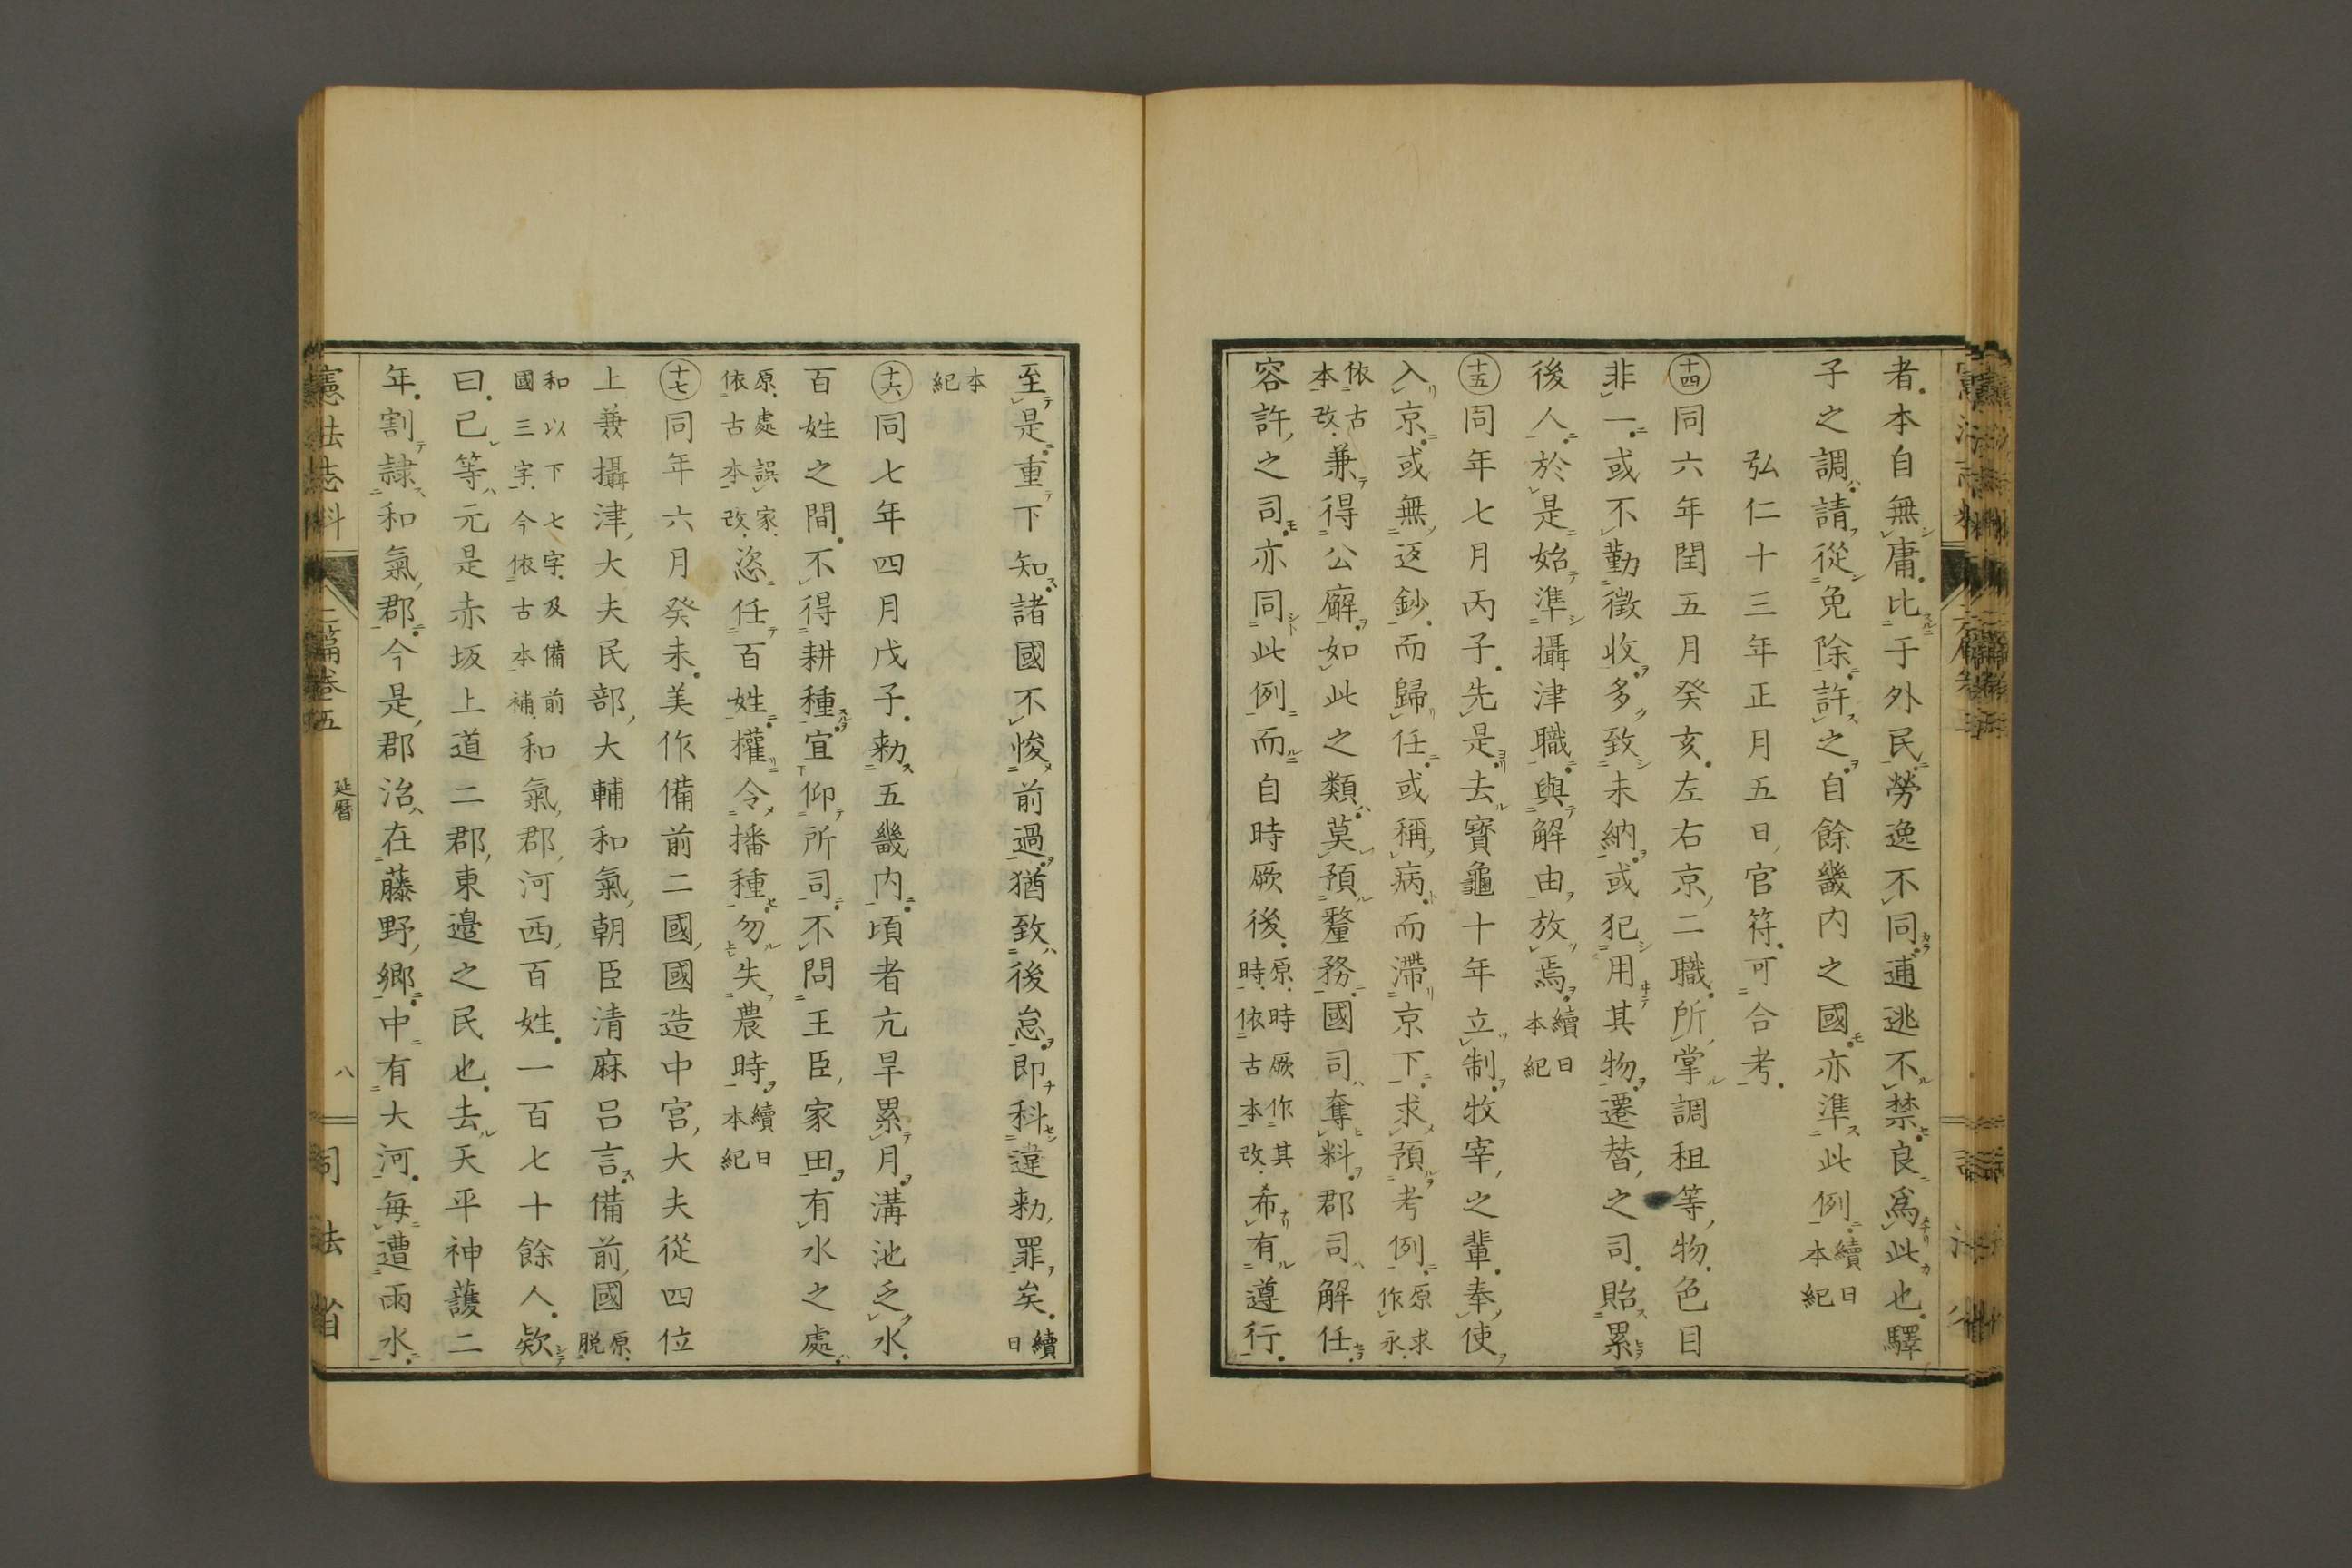 者本自無庸比于外民勞逸不同逋逃不禁良爲此也驛
子之調請從免除許之自餘畿内之國亦準此例續日本紀
弘仁十三年正月五日官符可合考
十四同六年閏五月癸亥左右京二職所掌調租等物色目
非一或不勤徴收多致未納或犯用其物遷替之司貽累
後人於是始準攝津職與解由放焉續日本紀
十五同年七月丙子先是去寳龜十年立制牧宰之輩奉使
入京或無返鈔而歸任或稱病而滯京下求預考例原求作永
依古本改兼得公廨如此之類莫預釐務國司奪料郡司解任
容許之司亦同此例而自時厥後原時厥作其時依古本改希有遵行
至是重下知諸國不悛前過猶致後怠即科違勅罪矣續日
本紀
十六同七年四月戊子勅五畿内頃者亢旱累月溝池乏水
百姓之間不得耕種宜仰所司不問王臣家田有水之處
原處誤家依古本改恣任百姓權令播種勿失農時續日本紀
十七同年六月癸未美作備前二國國造中宮大夫從四位
上兼攝津大夫民部大輔和氣朝臣清麻呂言備前國原脱
和以下七字及備前國三字今依古本補和氣郡河西百姓一百七十餘人欵
曰己等元是赤坂上道二郡東邉之民也去天平神護二
年割隷和氣郡今是郡治在藤野郷中有大河毎遭雨水
憲法志料
三篇卷五
延暦
八
司法省